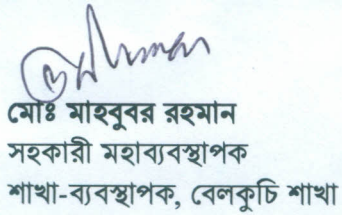 মোঃ মাহবুবর রহমান
সহকারী মহাব্যবস্থাপক
শাখা-ব্যবস্থাপক, বেলকুচি শাখা